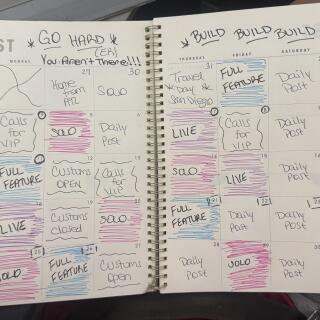 ST
GO HARD
(ER)
You Aren't There!!!
MONDAY
29
30
Home from
SOLO
Calls for VIP
SOLO
Daily Post
FULL FEATURE
12
Customs OPEN
13
Calls for VIP
LIVE
19
Customs closed
SOLO
SOLO
FULL FEATURE
27
Customs Open
BUILD BUILD BUILD
THURSDAY
FRIDAY
SATURDAY
31
Travel day San Diego
FULL FEATURE
Daily Post
LIVE
Calls for VIP
Daily Post
SOLO
LIVE
Daily Post
FULL FEATURE
21
Daily Post
22
Daily Post
Daily Post
SOLO
29
Daily Post